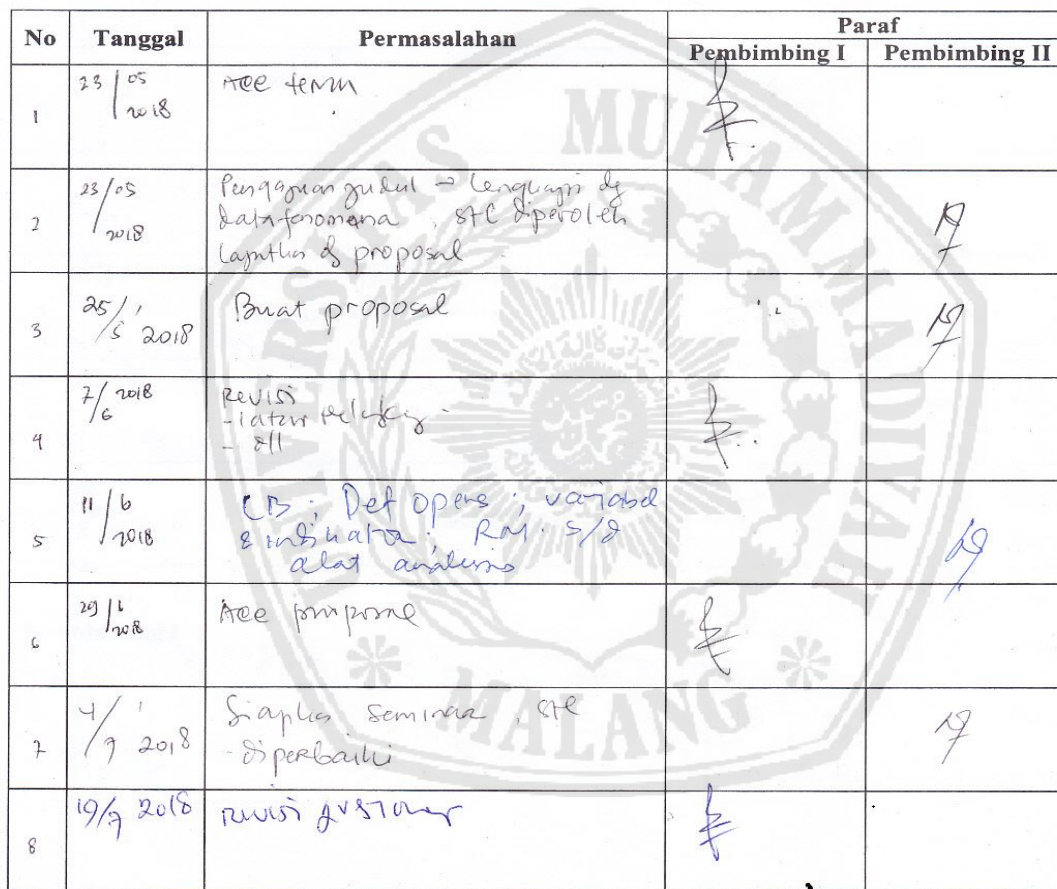 No Tanggal Permasalahan Paraf
Pembimbing I Pembimbing II
1 23/05 2018 Acc
2 23/05 2018 Pengajuan judul → lengkapi dg
data fenomena, stl diperoleh
lanjutkan dg proposal
3 25/5 2018 Buat proposal
4 7/6 2018 Revisi
- latar belakang
- dll
5 11/6 2018 LB; Def opers; variabel
& indikator; RM. s/d
alat analisis
6 29/6 2018 Acc proposal
7 4/7 2018 Siapkan seminar, stl
- diperbaiki
8 19/7 2018 Revisi
UNIVERSITAS MUHAMMADIYAH
MALANG